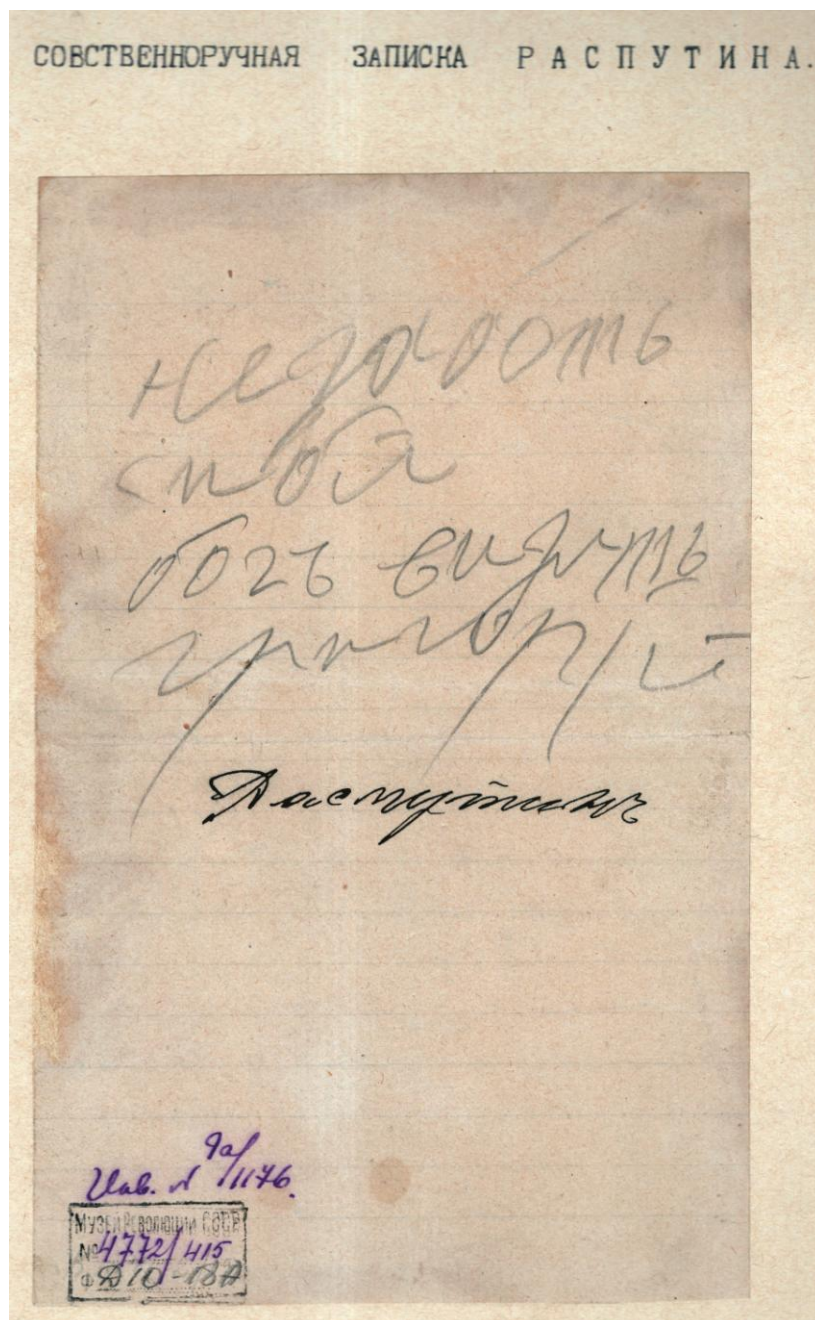 СОБСТВЕННОРУЧНАЯ ЗАПИСКА РАСПУТИНА.
богъ видить
Григорий
Распутинъ
9а/1176.
Инв. №
МУЗЕЙ РЕВОЛЮЦИИ СССР
№ 4772/415
Ф Д10-18А